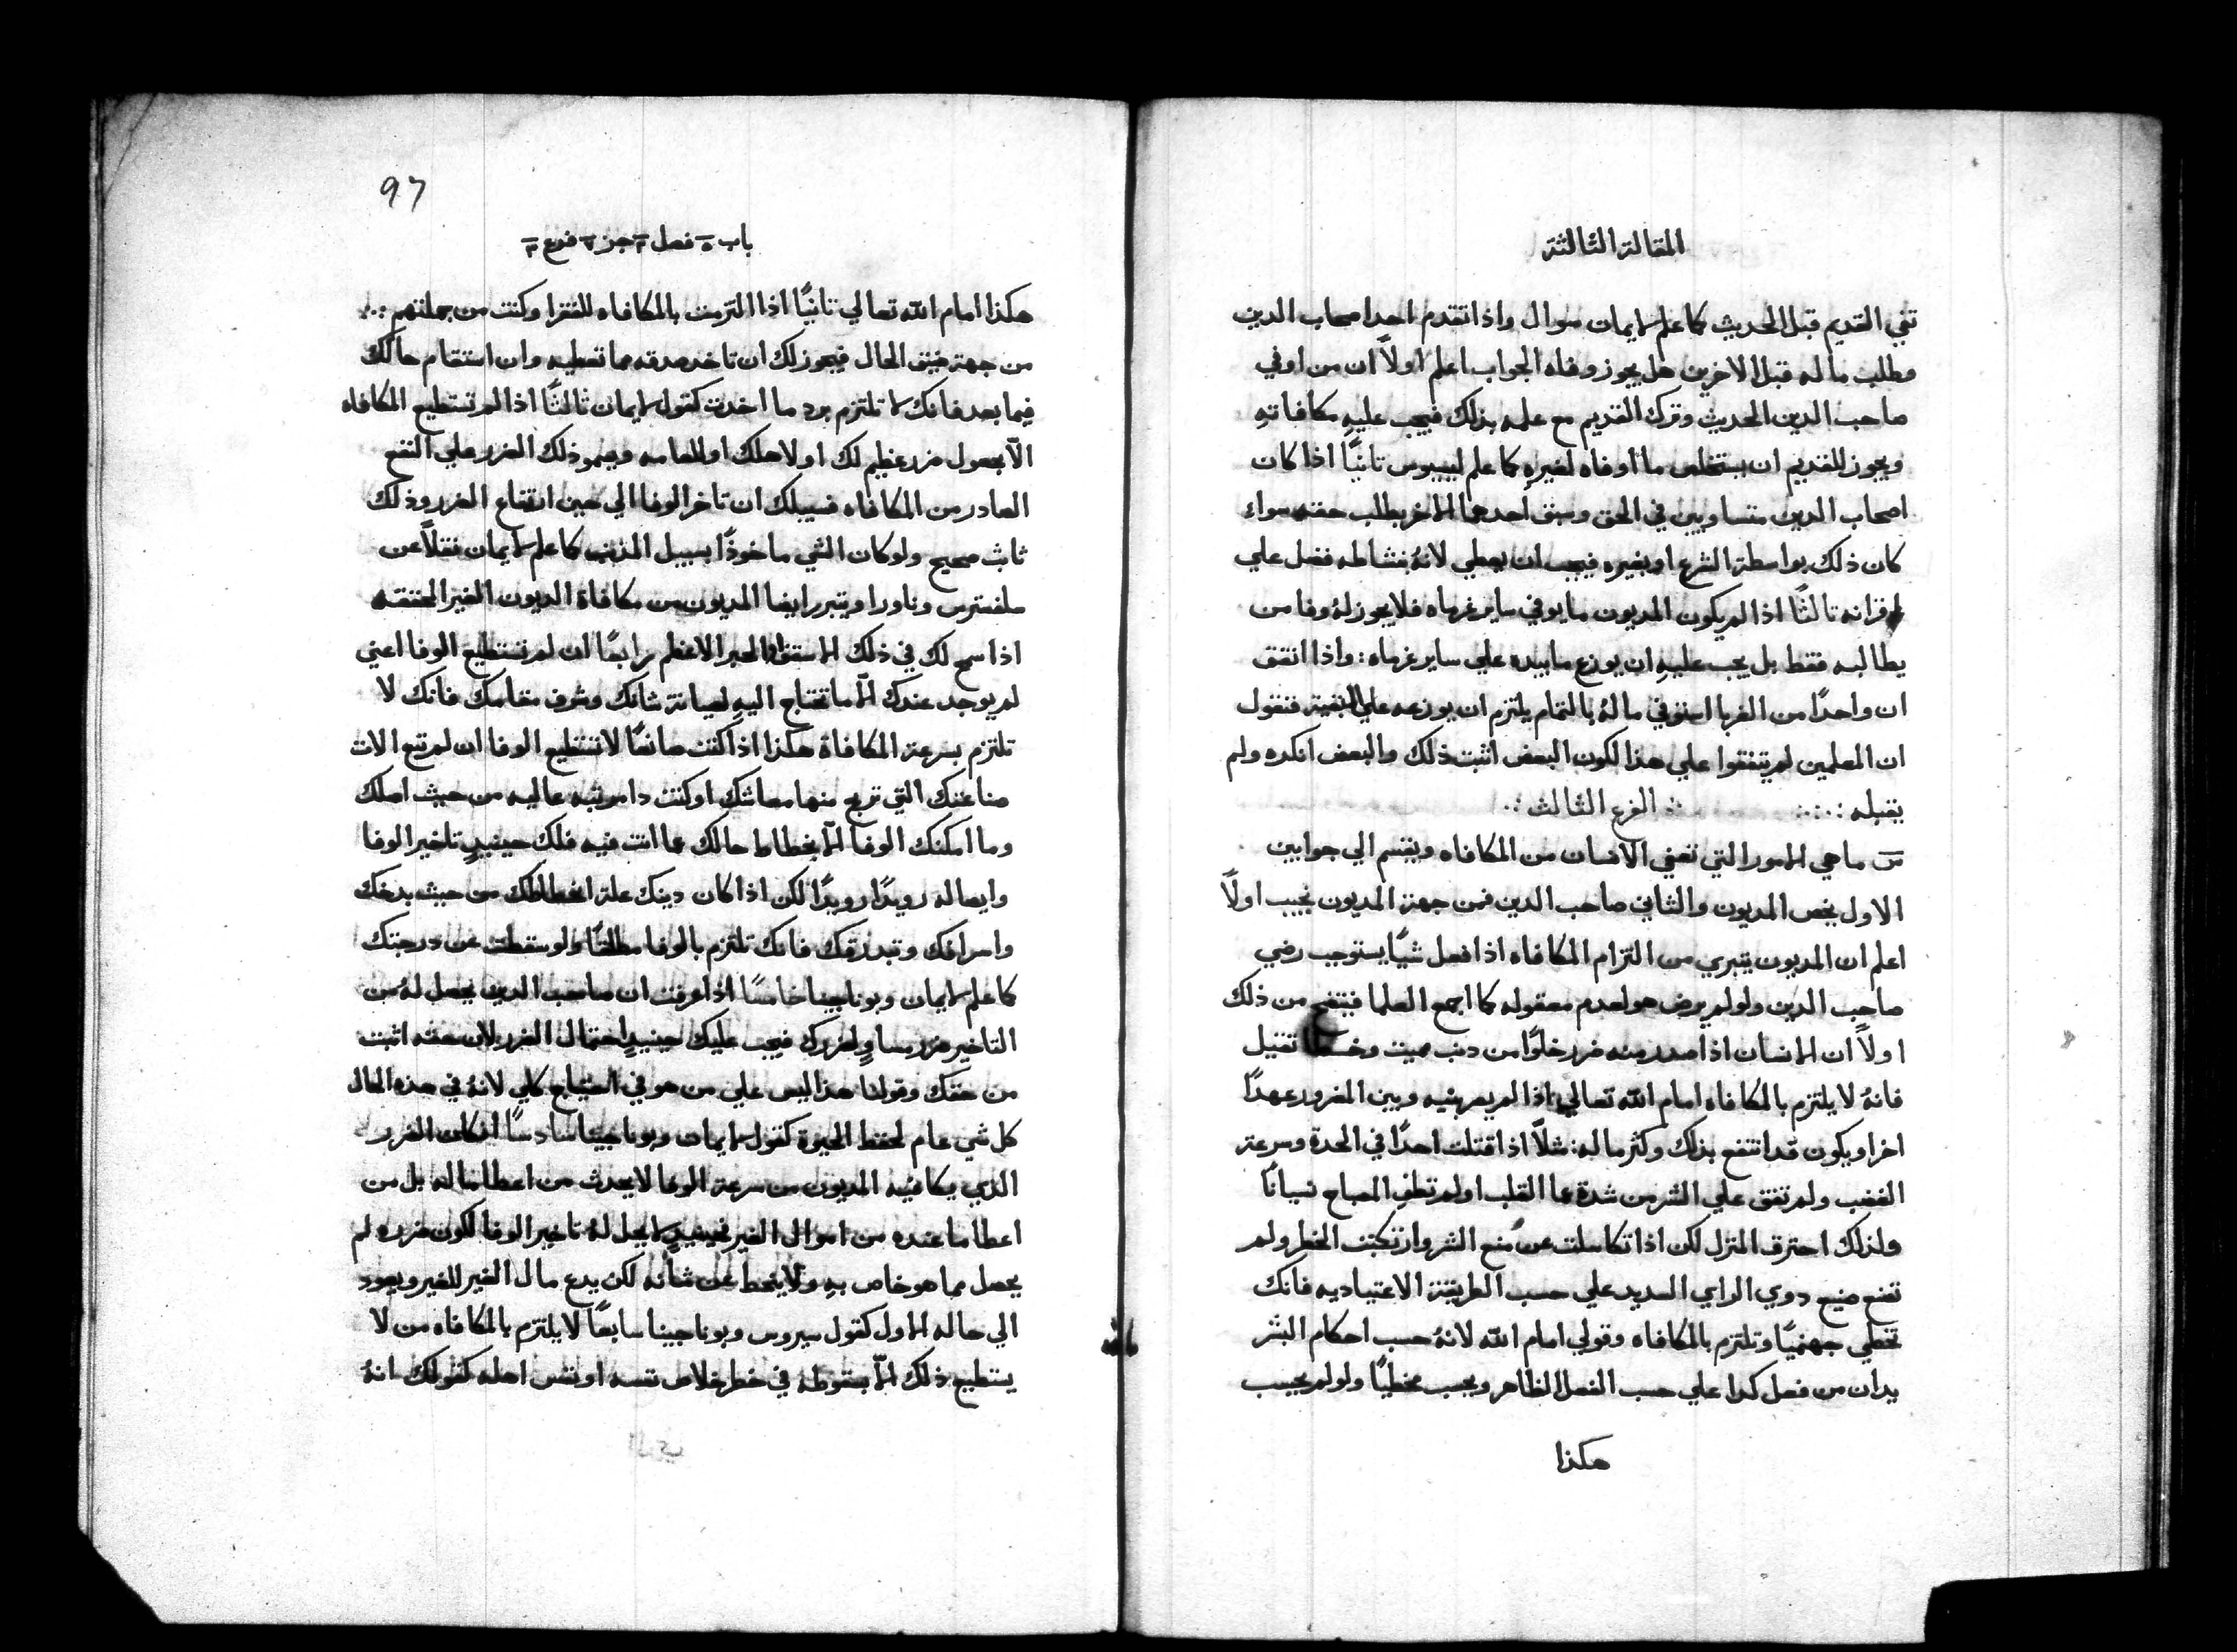 المقالة الثالثة
تفي القديم قبل الحديث كما علم لايمان سوال واذا تقدم احد اصحاب الدين
وطلب ماله قبل الاخرين هل يجوز وفاه الجواب اعلم اولاً ان من اوفي
صاحب الدين الحديث وترك القديم مع علمه بذلك فيجب عليهِ مكافاتهِ
ويجوز للقديم ان يستخلص ما اوفاه لغيرهِ كما علم ليسيوس تانيًا اذا كان
اصحاب الدين متساويين في الحق وسبق احدهما الاخر بطلب حقه سواء
كان ذلك بواسطة الشرع او بغيره فيجب ان يعطي لانهُ بنشاطه فضل علي
اقرانه تالثًا اذا لم يكون المديون ما يوفي ساير غرماه فلا يجوز لهُ وفا من
يطالبه فقط بل يجب عليهِ ان يوزع ما بيده علي ساير غرماه: واذا اتفق
ان واحدًا من الغربا استوفي مالهُ بالتمام يلتزم ان يوزعه علي البقية فنقول
ان المعلمين لم يتفقوا علي هذا لكون البعض اثبت ذلك والبعض انكره ولم
يقبله :.:. الفرع الثالث :.
س ما هي الامور التي تعفي الانسان من المكافاه ويقسم الي جوابين
الاول يخص المديون والثاني صاحب الدين فمن جهة المديون نجيب اولاً
اعلم ان المديون يتبري من التزام المكافاه اذا فعل شيًا يستوجب رضي
صاحب الدين ولو لم يرض هو لعدم معقوله كما اجمع العلما فيتضح من ذلك
اولاً ان الانسان اذا صدر منه ضرر خلوًا من دنب مميت وخسـ تقيل
فانهُ لا يلتزم بالمكافاه امام الله تعالي اذا لم يصر بينه وبين المضرور عهدًا
اخر او يكون قد انتفع بذلك وكثر ماله: مثلاً اذا قتلت احدًا في الحدة وسرعة
الغضب ولم تفق علي الشر من شدة عما القلب او لم تطفِ المصباح نسيانًا
ولذلك احترق المنزل لكن اذا تكاسلت عن منع الشر وارتكبت الخطر ولم
تصنع صنيع دوي الراي السديد علي حسب الطريقة الاعتياديه فانك
تخطي جهنميًا وتلتزم بالمكافاه وقولي امام الله لانهُ حسب احكام البشر
يدان من فعل كدا علي حسب الفعل الظاهر ويحسب مخطيًا ولو لم يحسب
هكذا
97
باب ٥ فصل ٣ جز ٧ فرع ٣
هكذا امام الله تعالي تانيًا اذا التزمت بالمكافاه للفقرا وكنت من جملتهم :.
من جهة ضيق الحال فيجوز لك ان تاخد صدقه مما تعطيه وان استقام حالك
فيما بعد فانك لا تلتزم برد ما اخدت كقول لايمان ثالثًا اذا لم تستطيع المكافاه
الا بحصول ضرر عظيم لك او لاهلك او للعامه ويسمو ذلك الضرر علي النفع
الصادر من المكافاه فسبيلك ان تاخر الوفا الي حين انقطاع الضرر وذلك
ثابث صحيح ولو كان الشي ماخوذًا بسبيل الذنب كما علم لايمان نقلاً عن
سلفسترس وناورا ويتبرر ايضا المديون من مكافاة الديون الغير المحققه
اذا سمح لك في ذلك الاسقف او الحبر الاعظم رابعًا ان لم تستطيع الوفا اعني
لم يوجد عندك الا ما تحتاج اليهِ لصيانة شانك وشرف مقامك فانك لا
تلتزم بسرعة المكافاة هكذا اذا كنت صانعًا لا تستطيع الوفا ان لم تبع الات
صناعتك التي تربح منها معاشك او كنت دا مرتبه عاليه من حيث اصلك
وما امكنك الوفا الا بخطاط حالك عما انت فيه فلك حينيدٍ تاخير الوفا
وايصاله رويدًا رويدًا لكن اذا كان دينك علة انحطاطك من حيث بدخك
واسرافك وتبدرقك فانك تلتزم بالوفا مطلقًا ولو سقطت عن درجتك
كما علم لايمان وبوناجينا خامسًا اذا عرفت ان صاحب الدين يحصل لهُ من
التاخير ضرر مساوٍ لضررك فيجب عليك حينيدٍ احتمال الضرر لان حقه اثبت
من حقك وقولنا هذا ليس علي من هو في احتياج كلي لانهُ في هذه الحال
كل شي عام لحفظ الحيوة كقول لايمان وبوناجينا سادسًا ان كان الضرر
الذي يكافيه المديون من سرعة الوفا لا يحدث من اعطا ماله بل من
اعطا ما عنده من اموال الغير فحينيدٍ لا يحل لهُ تاخير الوفا لكون ضرره لم
يحصل مما هو خاص بهِ ولا ينحط عن شانه لكن يدع مال الغير للغير ويعود
الي حاله الاول كقول سيروس وبوناجينا سابعًا لا يلتزم بالمكافاه من لا
يستطيع ذلك الا بسقوطه في خطر خلاص نفسه او نفس اهله كقولك انهُ